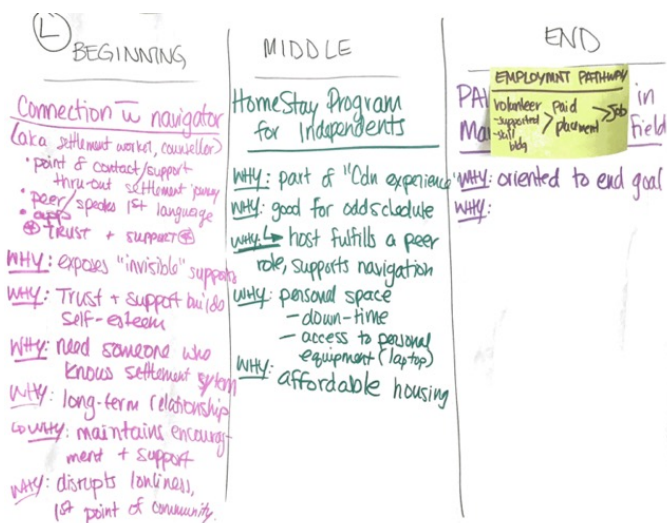 L
BEGINNING
Connection w navigator
(aka settlement worker, counsellor)
• point of contact/support
thru-out settlement journey
• peer/speaks 1st language
• apps
TRUST + SUPPORT
WHY: exposes "invisible" supports
WHY: Trust + support builds
self-esteem
WHY: need someone who
knows settlement system
WHY: long-term relationship
WHY: maintains encourage-
ment + support
WHY: disrupts lonliness,
1st point of community.
MIDDLE
HomeStay Program
for Independents
WHY: part of "Cdn experience"
WHY: good for odd schedule
WHY: host fulfills a peer
role, supports navigation
WHY: personal space
– down-time
– access to personal
equipment (laptop)
WHY: affordable housing
END
EMPLOYMNT PATHWAY
volunteer > Paid > Job
-supported placement
-skill
bldg
PAI in
Ma Field
WHY: oriented to end goal
WHY: